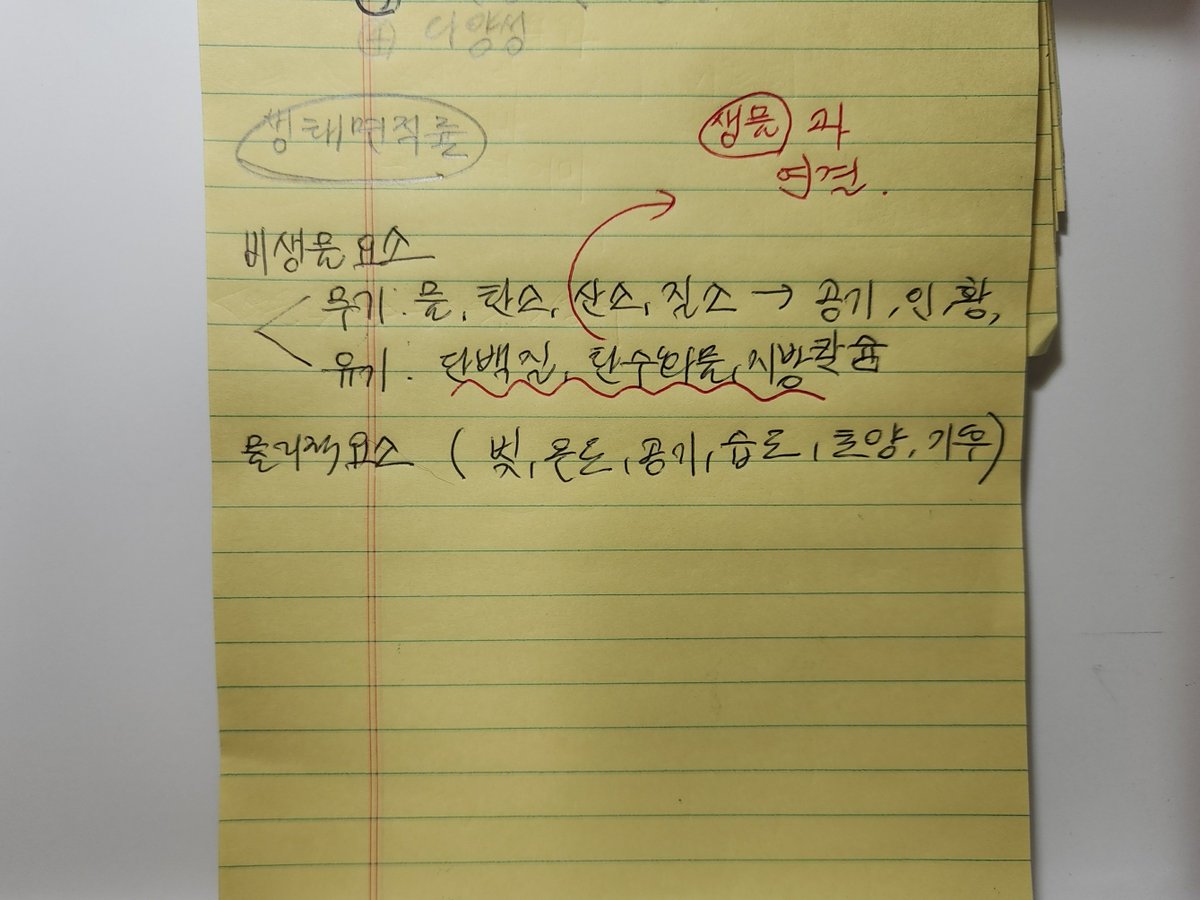 (+) 다양성
생태면적률
생물과
연결.
비생물요소
무기 : 물, 탄소, 산소, 질소 → 공기, 인, 황,
유기 : 단백질, 탄수화물, 지방 칼슘
물리적요소 ( 빛, 온도, 공기, 습도, 토양, 기후)